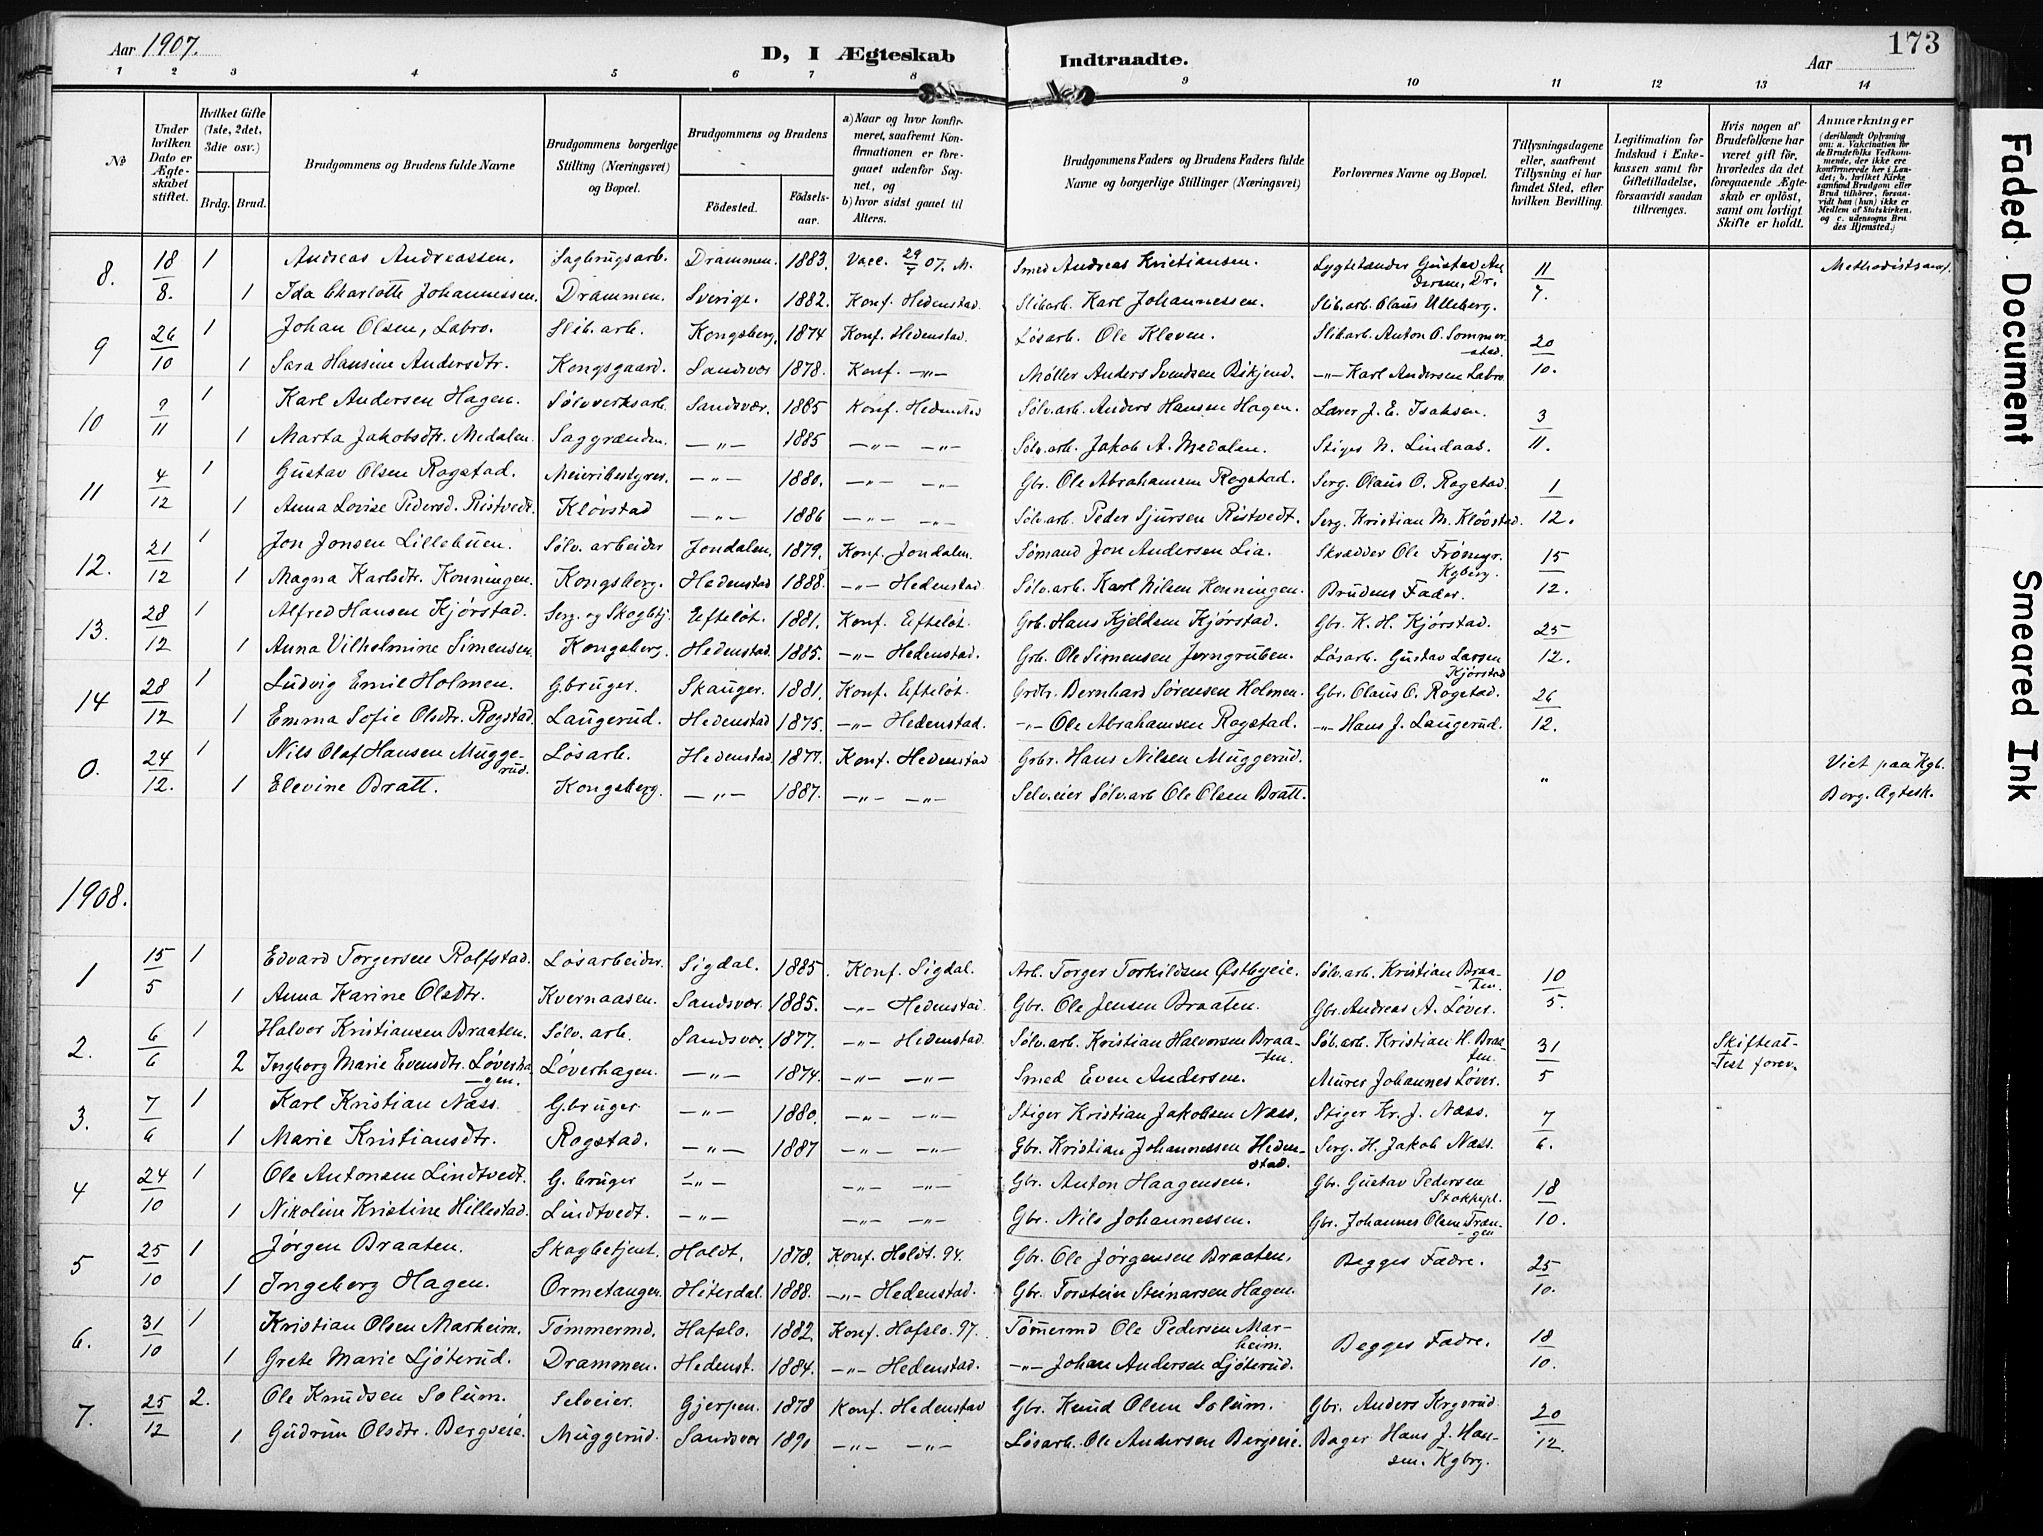 Aar 1907.
D, I Ægteskab Indtraadte.
Aar
173
1 2 3 4 5 6 7 8 9 10 11 12 13 14
No
Under hvilken Dato er Ægteskabet stiftet.
Hvilket Gifte (1ste, 2det, 3die osv.)
Brdg. Brud.
Brudgommens og Brudens fulde Navne
Brudgommens borgerlige Stilling (Næringsvei) og Bopæl.
Brudgommens og Brudens
Födested. Födselsaar.
a) Naar og hvor konfirmeret, saafremt Konfirmationen er foregaaet udenfor Sognet, og
b) hvor sidst gaaet til Alters.
Brudgommens Faders og Brudens Faders fulde Navne og borgerlige Stillinger (Næringsvei)
Forlovernes Navne og Bopæl.
Tillysningsdagene eller, saafremt Tillysning ei har fundet Sted, efter hvilken Bevilling.
Legitimation for Indskud i Enkekassen samt for Giftetilladelse, forsaavidt saadan tiltrænges.
Hvis nogen af Brudefolkene har været gift för, hvorledes da det foregaaende Ægteskab er oplöst, samt om lovligt Skifte er holdt.
Anmærkninger (deriblandt Oplysning om: a. Vakcination for de Brudefolks Vedkommende, der ikke ere konfirmerede her i Landet; b. hvilket Kirkesamfund Brudgom eller Brud tilhörer, forsaavidt han (hun) ikke er Medlem af Statskirken, og c. udensogns Brudes Hjemsted.)
8. 18/8. 1 Andreas Andreassen. Sagbrugsarb. Drammen. 1883. Vacc. 29/7 07. M. Smed Andreas Kristiansen. Lygtetænder Gustav Andersen, Dr. 11/7. Methodistsamf.
1 Ida Charlotte Johannessen. Drammen. Sverige. 1882. Konf. Hedenstad. Slibarb. Karl Johannessen. Slib.arb. Claus Ulleberg.
9 26/10 1 Johan Olsen, Labro. Slib.arb. Kongsberg, 1874 Konf. Hedenstad. Løsarb. Ole Kleven. Slibarb. Anton O. Sommerstad. 20/10.
1 Sara Hansine Andersdtr. Kongsgaard. Sandsvær 1878. Konf. -"- Møller Anders Svendsen Bikjend. -"- Karl Andersen Labro.
10 9/11 1 Karl Andersen Hagen. Sølvverksarb. Sandsvær. 1885 Konf. Hedenstad Sølv.arb. Anders Hansen Hagen. Lærer J. E. Isaksen. 3/11.
1 Marta Jakobsdtr. Medalen. Saggrænden. -"- 1885 -"- -"- Sølv.arb. Jakob A. Medalen. Stiger N. Lindaas.
11 4/12 1 Gustav Olsen Rogstad. Meieribestyrer. -"- 1880. -"- -"- Gbr. Ole Abrahamsen Rogstad. Serg. Olaus O. Rogstad. 1/12.
1 Anna Lovise Pedersd. Ristvedt. Kløvstad -"- 1886 -"- -"- Sølv.arb. Peder Sjursen Ristvedt. Serg. Kristian M. Kløvstad.
12. 21/12 1 Jon Jonsen Lillebuen. Sølv.arbeider Jondalen. 1879. Konf. Jondalen. Sømand Jon Andersen Lia. Skrædder Ole Frømyr. Kgberg. 15/12.
1 Magna Karlsdtr. Konningen. Kongsberg. Hedenstad 1888. -"- Hedenstad Sølv.arb. Karl Nilsen Konningen. Brudens Fader.
13. 28/12 1 Alfred Hansen Kjørstad. Serg. og Skogbtj. Efteløt. 1881. Konf. Efteløt. Grb. Hans Kjeldsen Kjørstad. Gbr. K. H. Kjørstad. 25/12.
1 Anna Vilhelmine Simensen. Kongsberg. Hedenstad. 1885. -"- Hedenstad. Grb. Ole Simensen Jerngruben. Løsarb. Gustav Larsen Kjørstad
14 28/12 1 Ludvig Emil Holmen. G.bruger. Skauger. 1881. Konf. Efteløt. Grdtr. Bernhard Sørensen Holmen. Gbr. Olaus O. Rogstad. 26/12.
1 Emma Sofie Olsdtr. Rogstad. Laugerud. Hedenstad 1875. -"- Hedenstad. -"- Ole Abrahamsen Rogstad. -"- Hans J. Laugerud.
0. 24/12. 1 Nils Olaf Hansen Muggerud. Løsarb. Hedenstad 1877. Konf. Hedenstad Grbr. Hans Nilsen Muggerud. Viet paa Kgb.
1 Elevine Bratt. Kongsberg. -"- 1887. -"- -"- Selv.eier Sølv.arb Ole Olsen Bratt. " Borg. Ægtesk.
1908.
1 15/5 1 Edvard Torgersen Rolfstad. Løsarbeider. Sigdal. 1885. Konf. Sigdal. Arb. Torger Torkildsen Østbyeie. Sølv.arb. Kristian Braaten. 10/5.
1 Anna Karine Olsdtr. Kvernaasen. Sandsvær. 1885. -"- Hedenstad. Gbr. Ole Jensen Braaten. Gbr. Andreas A. Løver.
2. 6/6 1 Halvor Kristiansen Braaten. Sølv.arb. Sandsvær. 1877. -"- Hedenstad. Sølv.arb. Kristian Halvorsen Braaten. Sølv.arb. Kristian H. Braaten. 31/5 Skifteattest forev.
2 Ingborg Marie Evensdtr. Løverhagen. Løverhagen. -"- 1874. -"- -"- Smed Even Andersen. Murer Johannes Løver.
3. 7/6 1 Karl Kristian Næss. G.bruger -"- 1880. -"- -"- Stiger Kristian Jakobsen Næss. Stiger Kr. J. Næss. 7/6.
1 Marie Kristiansdtr. Rogstad. -"- 1887 -"- -"- Gbr. Kristian Johannessen Hedenstad. Serg. H. Jakob Næss.
4 24/10 1 Ole Antonsen Lindtvedt. G.bruger -"- -"- -"- Gbr. Anton Haagensen. Gbr. Gustav Pedersen Stokkepl. 18/10.
1 Nikoline Kristine Hillestad. Lindtvedt. -"- -"- -"- Gbr. Nils Johannessen. Gbr. Johannes Olsen Trængen
5 25/10 1 Jørgen Braaten. Skogbetjent. Holdt. 1878. Konf. Holdt. 94. Gbr. Ole Jørgensen Braaten. Begges Fædre. 25/10.
1 Ingeborg Hagen. Ormetangen. Hiterdal. 1888. -"- Hedenstad. Gbr. Torstein Steinarsen Hagen.
6. 31/10 1 Kristian Olsen Marheim. Tømmermd. Hafslo. 1882. Konf. Hafslo. 97. Tømermd Ole Pedersen Marheim. Begges Fædre. 18/10.
1 Grete Marie Ljøterud. Drammen. Hedenst. 1884. -"- Hedenstad. -"- Johan Andersen Ljøterud.
7. 25/12 2. Ole Knudsen Solum. Selveier. Gjerpen. 1878 Konf. Hedenstad Gbr. Knud Olsen Solum. Gbr. Anders 20/12.
1 Gudrun Olsdtr. Bergseie. Muggerud. Sandsvær 1890 -"- -"- Løsarb. Ole Andersen Bergseie. Bager Hans J. Hansen. Kgbrg.
Faded Document
Smeared Ink